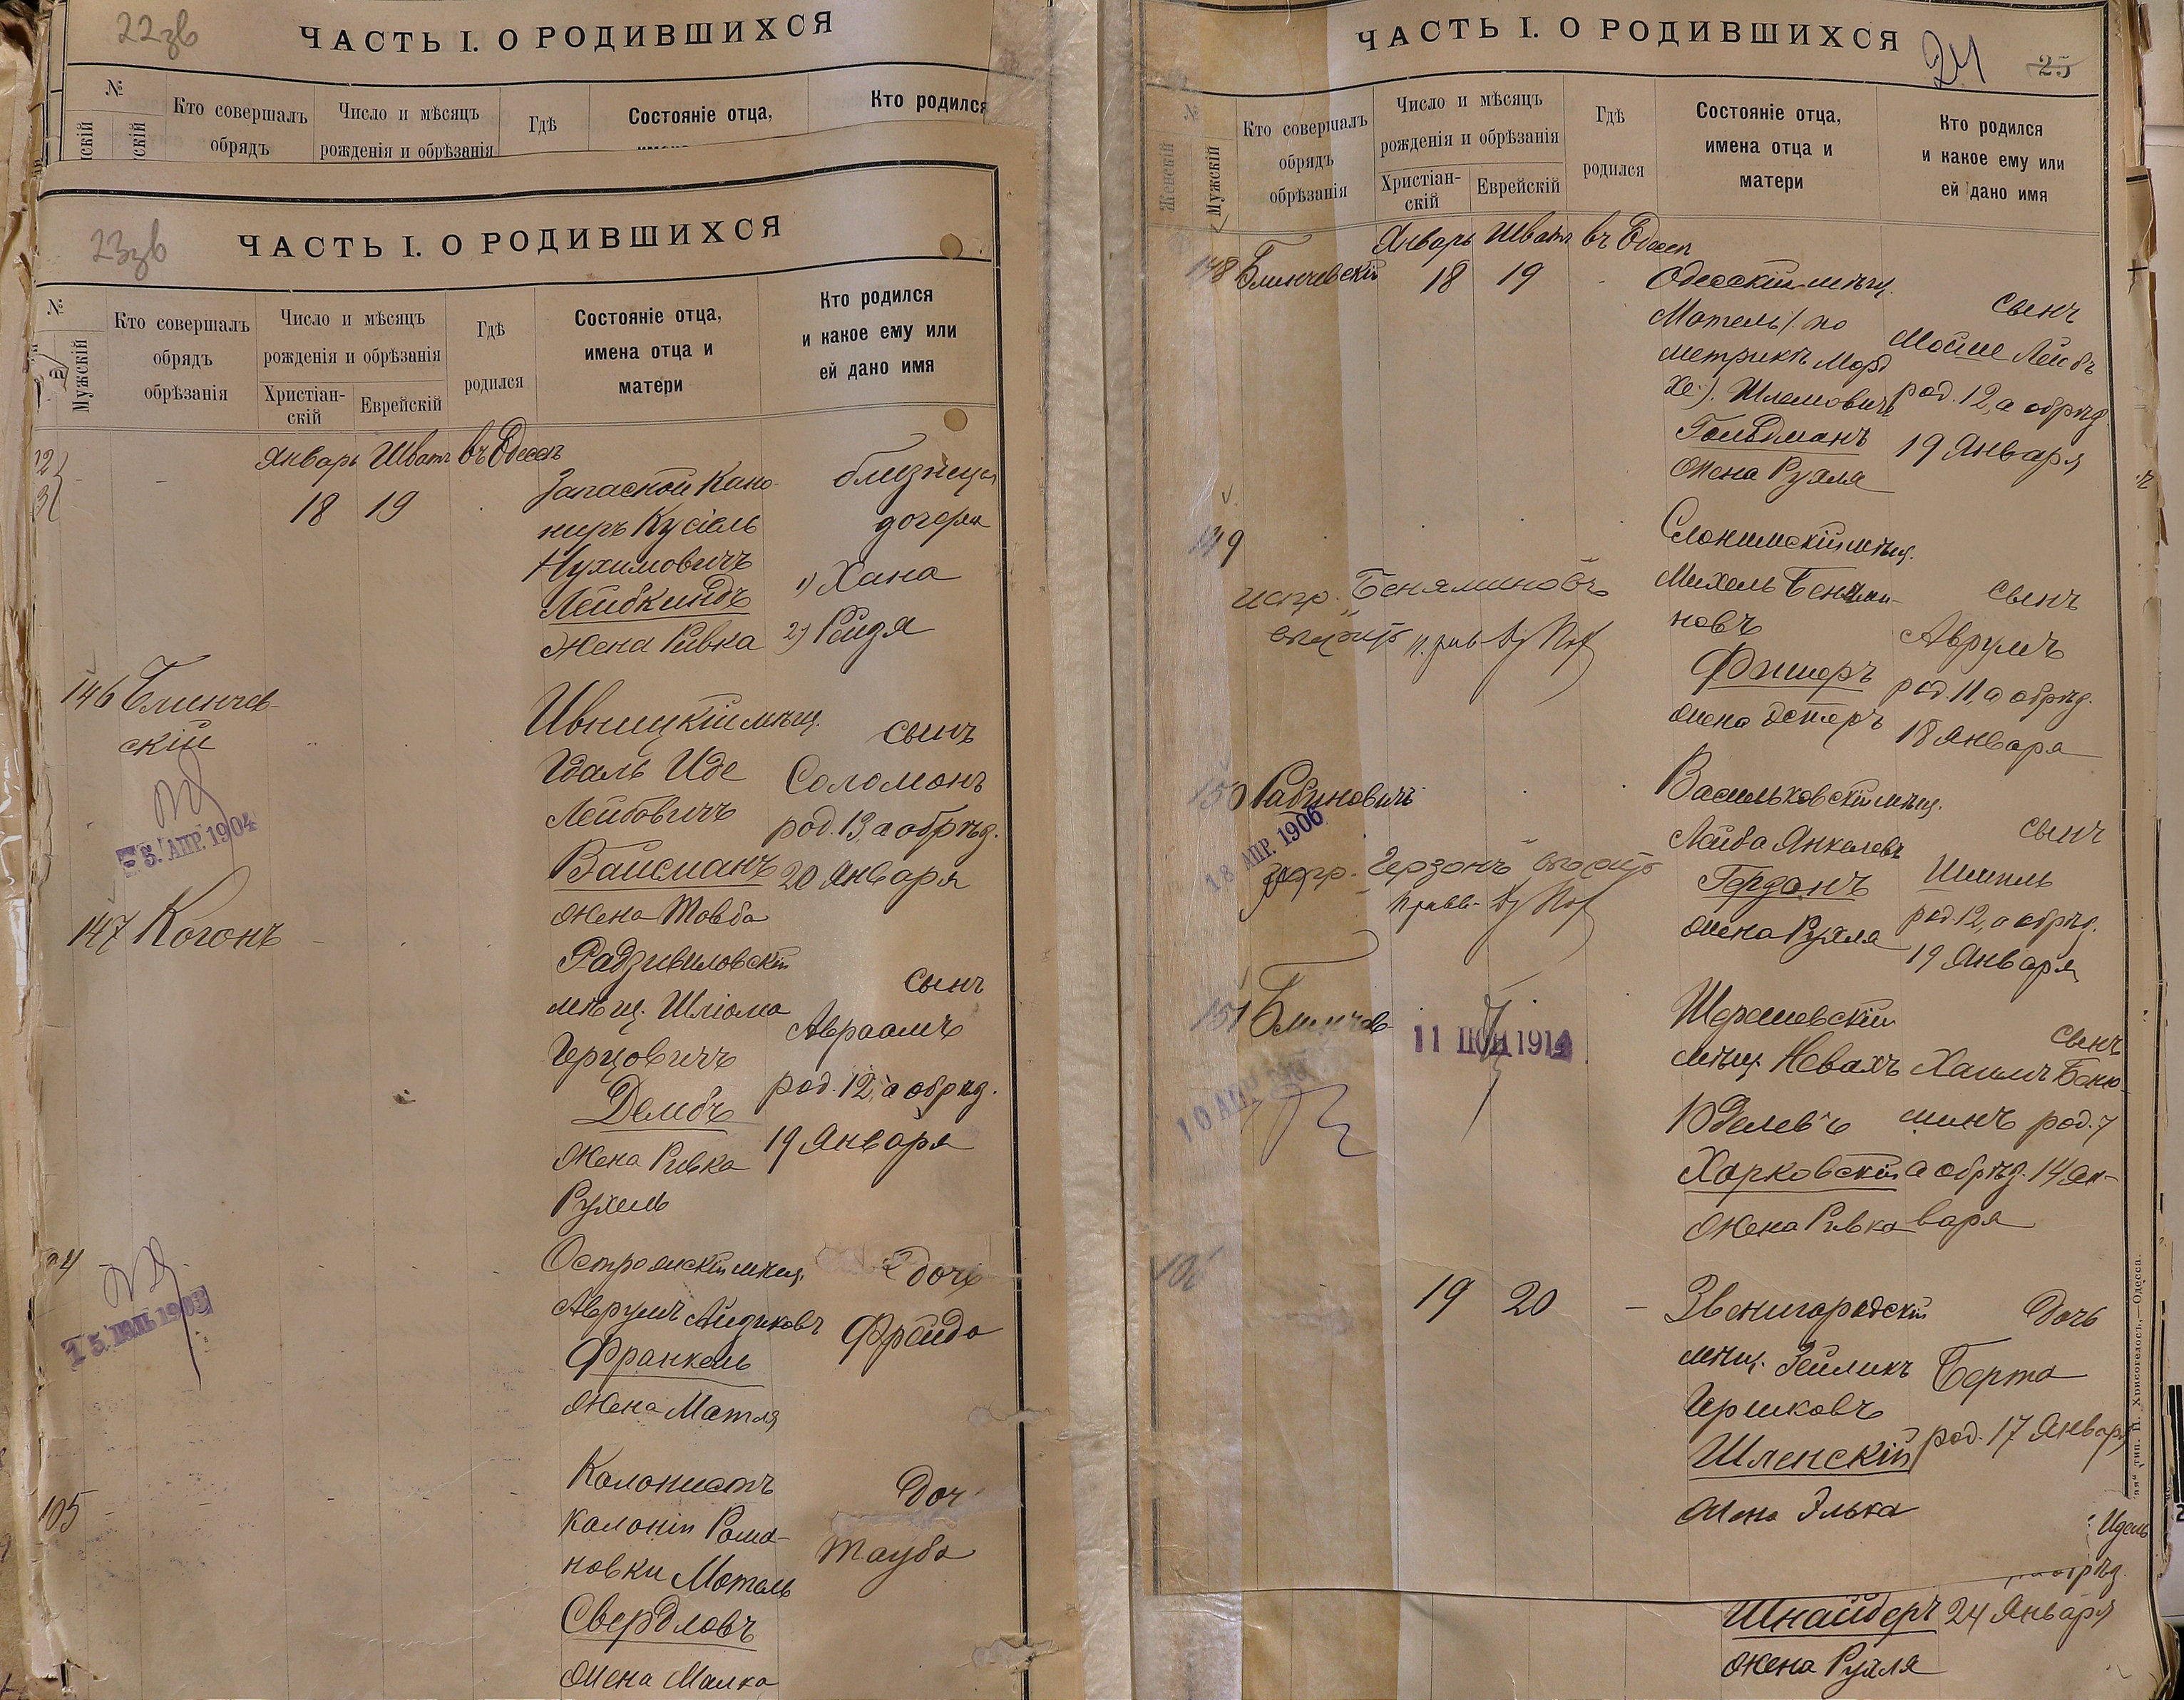 22зв
ЧАСТЬ I. О РОДИВШИХСЯ
№
Кто совершалъ
обрядъ
Число и мѣсяцъ
рожденія и обрѣзанія
Гдѣ
Состояніе отца,
Кто родился
скій
скій
23зв
ЧАСТЬ I. О РОДИВШИХСЯ
№
Мужскій
Кто совершалъ
обрядъ
обрѣзанія
Число и мѣсяцъ
рожденія и обрѣзанія
Христіан-
скій
Еврейскій
Гдѣ
родился
Состояніе отца,
имена отца и
матери
Кто родился
и какое ему или
ей дано имя
Январь Шватъ въ Одессѣ
18 19
Запасной Кано-
ниръ Кусіель
Нухимовичъ
Лейбкиндъ
жена Ривка
близнецы
дочери
1) Хана
2) Рейзя
146 Блинчев-
скій
5. АПР. 1904
Ивницкій мѣщ.
Удаль Иде
Лейбовичъ
Вайсманъ
жена Товба
сынъ
Соломонъ
род. 13, а обрѣз.
20 Января
147 Когонъ
Радзивиловскій
мѣщ. Шліома
Герцовичъ
Дембъ
жена Ривка
Рухель
сынъ
Авраамъ
род. 12, а обрѣз.
19 Января
15. ІЮЛЬ 1903
Аврумъ Айзиковъ
Франкель
жена Матля
дочь
Фрейда
105
Колонистъ
колоніи Рома-
новки Мотель
Свердловъ
жена Малка
Доч
Тауба
ЧАСТЬ I. О РОДИВШИХСЯ
24 25
№
Женскій
Мужскій
Кто совершалъ
обрядъ
обрѣзанія
Число и мѣсяцъ
рожденія и обрѣзанія
Христіан-
скій
Еврейскій
Гдѣ
родился
Состояніе отца,
имена отца и
матери
Кто родился
и какое ему или
ей дано имя
Январь Шватъ въ Одессѣ
148 Блинчевскій 18 19
Одесскій мѣщ.
Мотель (по
метрикѣ Мор
хе). Шлемовичъ
Гольдманъ
жена Рухля
сынъ
Мойше Лейбъ
род. 12, а обрѣз.
19 Января
149
испр. "Беняминовъ"
Слонимскій мѣщ.
Михель Бенями-
новъ
Фишеръ
жена Эстеръ
сынъ
Аврумъ
род. 11, а обрѣз.
18 Января
150 Рабиновичъ
18 АПР. 1906
испр. "Герзонъ"
Васильковскій мѣщ.
Лейба Янкелевъ
жена Рухля
сынъ
род. 12, а обрѣз.
19 Января
151 Блинчев-
11 1914
10 АПР
Шерешевскій
мѣщ. Невахъ
Юделевъ
Харковскій
жена Ривка
сынъ
Хаимъ Беню-
минъ род. 7
а обрѣз. 14 Ян-
варя
106
19 20
Звенигородскій
мѣщ. Зейликъ
Гершковъ
Шленскій
жена Элька
Дочь
Берта
род. 17 Января
тип. П. Хрисогелосъ,—Одесса.
Идель
Шнайдеръ 24 Января
жена Рухля